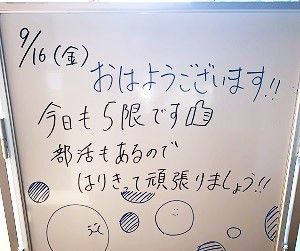 9/16(金)
おはようございます!!
今日も5限です
部活もあるので
はりきって頑張りましょう!!